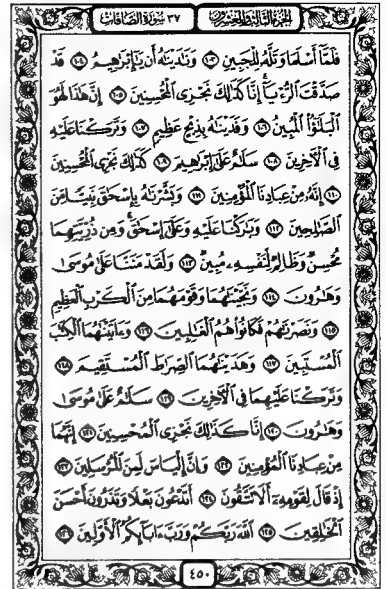 الجزء الثالث والعشرون
٣٧ سورة الصافات
فَلَمَّآ أَسْلَمَا وَتَلَّهُۥ لِلْجَبِينِ ١٠٣ وَنَٰدَيْنَٰهُ أَن يَٰٓإِبْرَٰهِيمُ ١٠٤ قَدْ
صَدَّقْتَ ٱلرُّءْيَآ إِنَّا كَذَٰلِكَ نَجْزِى ٱلْمُحْسِنِينَ ١٠٥ إِنَّ هَٰذَا لَهُوَ
ٱلْبَلَٰٓؤُا۟ ٱلْمُبِينُ ١٠٦ وَفَدَيْنَٰهُ بِذِبْحٍ عَظِيمٍ ١٠٧ وَتَرَكْنَا عَلَيْهِ
فِى ٱلْءَاخِرِينَ ١٠٨ سَلَٰمٌ عَلَىٰٓ إِبْرَٰهِيمَ ١٠٩ كَذَٰلِكَ نَجْزِى ٱلْمُحْسِنِينَ
١١٠ إِنَّهُۥ مِنْ عِبَادِنَا ٱلْمُؤْمِنِينَ ١١١ وَبَشَّرْنَٰهُ بِإِسْحَٰقَ نَبِيًّا مِّنَ
ٱلصَّٰلِحِينَ ١١٢ وَبَٰرَكْنَا عَلَيْهِ وَعَلَىٰٓ إِسْحَٰقَ وَمِن ذُرِّيَّتِهِمَا
مُحْسِنٌ وَظَالِمٌ لِّنَفْسِهِۦ مُبِينٌ ١١٣ وَلَقَدْ مَنَنَّا عَلَىٰ مُوسَىٰ
وَهَٰرُونَ ١١٤ وَنَجَّيْنَٰهُمَا وَقَوْمَهُمَا مِنَ ٱلْكَرْبِ ٱلْعَظِيمِ
١١٥ وَنَصَرْنَٰهُمْ فَكَانُوا۟ هُمُ ٱلْغَٰلِبِينَ ١١٦ وَءَاتَيْنَٰهُمَا ٱلْكِتَٰبَ
ٱلْمُسْتَبِينَ ١١٧ وَهَدَيْنَٰهُمَا ٱلصِّرَٰطَ ٱلْمُسْتَقِيمَ ١١٨
وَتَرَكْنَا عَلَيْهِمَا فِى ٱلْءَاخِرِينَ ١١٩ سَلَٰمٌ عَلَىٰ مُوسَىٰ
وَهَٰرُونَ ١٢٠ إِنَّا كَذَٰلِكَ نَجْزِى ٱلْمُحْسِنِينَ ١٢١ إِنَّهُمَا
مِنْ عِبَادِنَا ٱلْمُؤْمِنِينَ ١٢٢ وَإِنَّ إِلْيَاسَ لَمِنَ ٱلْمُرْسَلِينَ ١٢٣
إِذْ قَالَ لِقَوْمِهِۦٓ أَلَا تَتَّقُونَ ١٢٤ أَتَدْعُونَ بَعْلًا وَتَذَرُونَ أَحْسَنَ
ٱلْخَٰلِقِينَ ١٢٥ ٱللَّهَ رَبَّكُمْ وَرَبَّ ءَابَآئِكُمُ ٱلْأَوَّلِينَ ١٢٦
٤٥٠